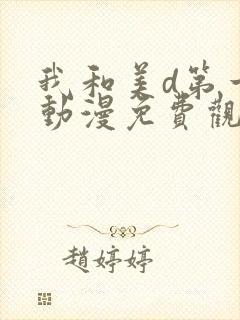 我和美d第一
動漫免費觀
趙婷婷